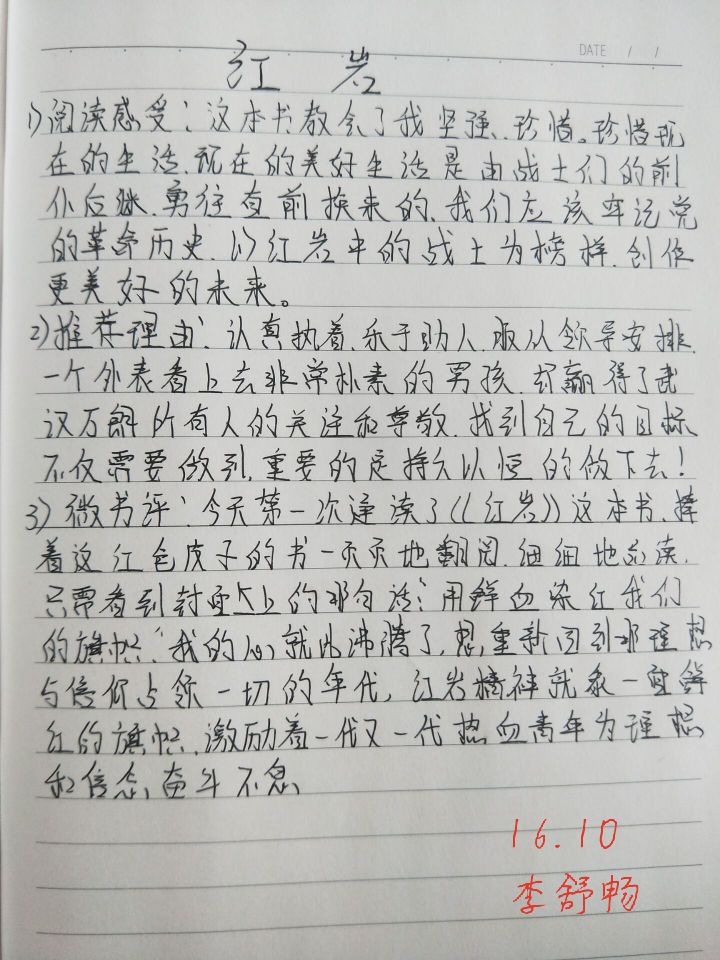 DATE / /
红岩
1)阅读感受:这本书教会了我坚强、珍惜。珍惜现
在的生活,现在的美好生活是由战士们的前
仆后继、勇往直前换来的,我们应该牢记党
的革命历史,以红岩中的战士为榜样,创作
更美好的未来。
2)推荐理由:认真执着、乐于助人、服从领导安排,
一个外表看上去非常朴素的男孩,却赢得了武
汉万所有人的关注和尊敬,找到自己的目标
不仅需要做到,重要的是持久以恒的做下去!
3)微书评:今天第一次通读了《红岩》这本书,捧
着这红色皮子的书一页页地翻阅,细细地品读,
只需看到封面上的那句话:用鲜血染红我们
的旗帜,我的心就此沸腾了,想重新回到那理想
与信仰占领一切的年代,红岩精神就象一面鲜
红的旗帜,激励着一代又一代热血青年为理想
和信念,奋斗不息
16.10
李舒畅